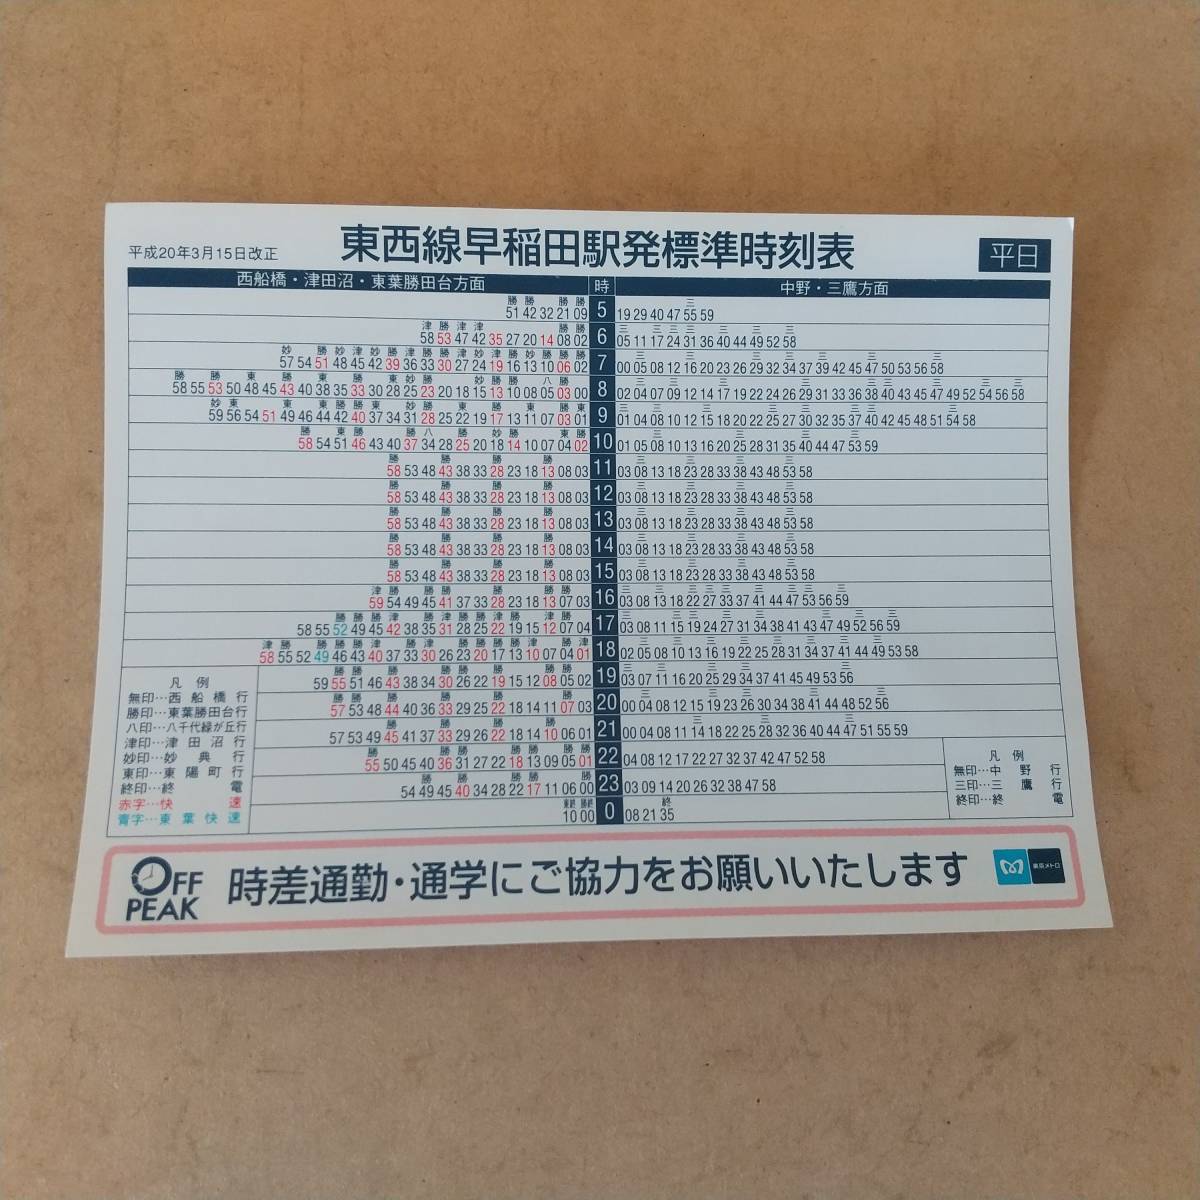 平成20年3月15日改正
東西線早稲田駅発標準時刻表
平日
西船橋・津田沼・東葉勝田台方面 時 中野・三鷹方面
勝 勝 勝 勝 三
51 42 32 21 09 5 19 29 40 47 55 59
津 勝 津 津 勝 勝 三 三 三 三 三 三 三
58 53 47 42 35 27 20 14 08 02 6 05 11 17 24 31 36 40 44 49 52 58
57 54 51 48 45 42 39 36 33 30 27 24 19 16 13 10 06 02 7 00 05 08 12 16 20 23 26 29 32 34 37 39 42 45 47 50 53 56 58
58 55 53 50 48 45 43 40 38 35 33 30 28 25 23 20 18 15 13 10 08 05 03 00 8 02 04 07 09 12 14 17 19 22 24 26 29 31 33 36 38 40 43 45 47 49 52 54 56 58
59 56 54 51 49 46 44 42 40 37 34 31 28 25 22 19 17 13 11 07 03 01 9 01 04 08 10 12 15 18 20 22 25 27 30 32 35 37 40 42 45 48 51 54 58
58 54 51 46 43 40 37 34 28 25 20 18 14 10 07 04 02 10 01 05 08 10 13 16 20 25 28 31 35 40 44 47 53 59
勝 勝 勝 勝 三 三 三 三
58 53 48 43 38 33 28 23 18 13 08 03 11 03 08 13 18 23 28 33 38 43 48 53 58
勝 勝 勝 勝 三 三 三 三
58 53 48 43 38 33 28 23 18 13 08 03 12 03 08 13 18 23 28 33 38 43 48 53 58
勝 勝 勝 勝 三 三 三 三
58 53 48 43 38 33 28 23 18 13 08 03 13 03 08 13 18 23 28 33 38 43 48 53 58
勝 勝 勝 勝 三 三 三 三
58 53 48 43 38 33 28 23 18 13 08 03 14 03 08 13 18 23 28 33 38 43 48 53 58
勝 勝 勝 勝 三 三 三 三
58 53 48 43 38 33 28 23 18 13 08 03 15 03 08 13 18 23 28 33 38 43 48 53 58
59 54 49 45 41 37 33 28 23 18 13 07 03 16 03 08 13 18 22 27 33 37 41 44 47 53 56 59
58 55 52 49 45 42 38 35 31 28 25 22 19 15 12 07 04 17 03 08 11 15 19 24 27 31 34 38 41 43 47 49 52 56 59
58 55 52 49 46 43 40 37 33 30 26 23 20 17 13 10 07 04 01 18 02 05 08 10 13 16 19 22 25 28 31 34 37 41 44 49 53 58
59 55 51 46 43 38 34 30 26 22 19 15 12 08 05 02 19 03 07 11 16 20 25 29 34 37 41 45 49 53 56
57 53 48 44 40 36 33 29 25 22 18 14 11 07 03 20 00 04 08 12 15 19 23 26 30 34 38 41 44 48 52 56
57 53 49 45 41 37 33 29 26 22 18 14 10 06 01 21 00 04 08 11 14 18 22 25 28 32 36 40 44 47 51 55 59
55 50 45 40 36 31 27 22 18 13 09 05 01 22 04 08 12 17 22 27 32 37 42 47 52 58
54 49 45 40 34 28 22 17 11 06 00 23 03 09 14 20 26 32 38 47 58
東終 勝終 終
10 00 0 08 21 35
凡例
無印…西船橋行
勝印…東葉勝田台行
八印…八千代緑が丘行
津印…津田沼行
妙印…妙典行
東印…東陽町行
終印…終電
赤字…快速
青字…東葉快速
凡例
無印…中野行
三印…三鷹行
終印…終電
OFF PEAK
時差通勤・通学にご協力をお願いいたします
東京メトロ